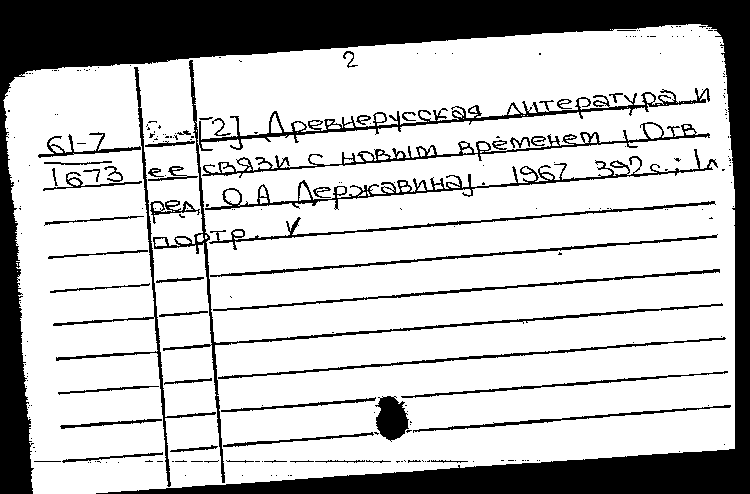 2
61-7 [2]. Древнерусская литература и
1673 ее связи с новым временем [Отв.
ред. О.А Державина]. 1967 392 с.; 1 л.
портр. V